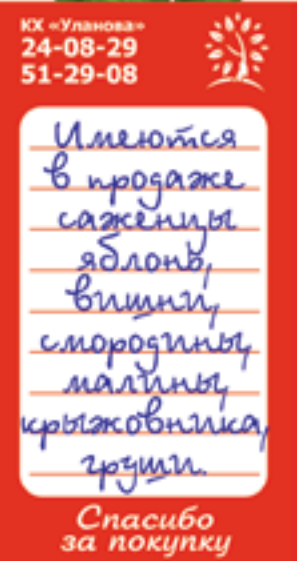 КХ «Уланова»
24-08-29
51-29-08
Имеются
в продаже
саженцы
яблонь,
вишни,
смородины,
малины,
крыжовника,
груши.
Спасибо
за покупку